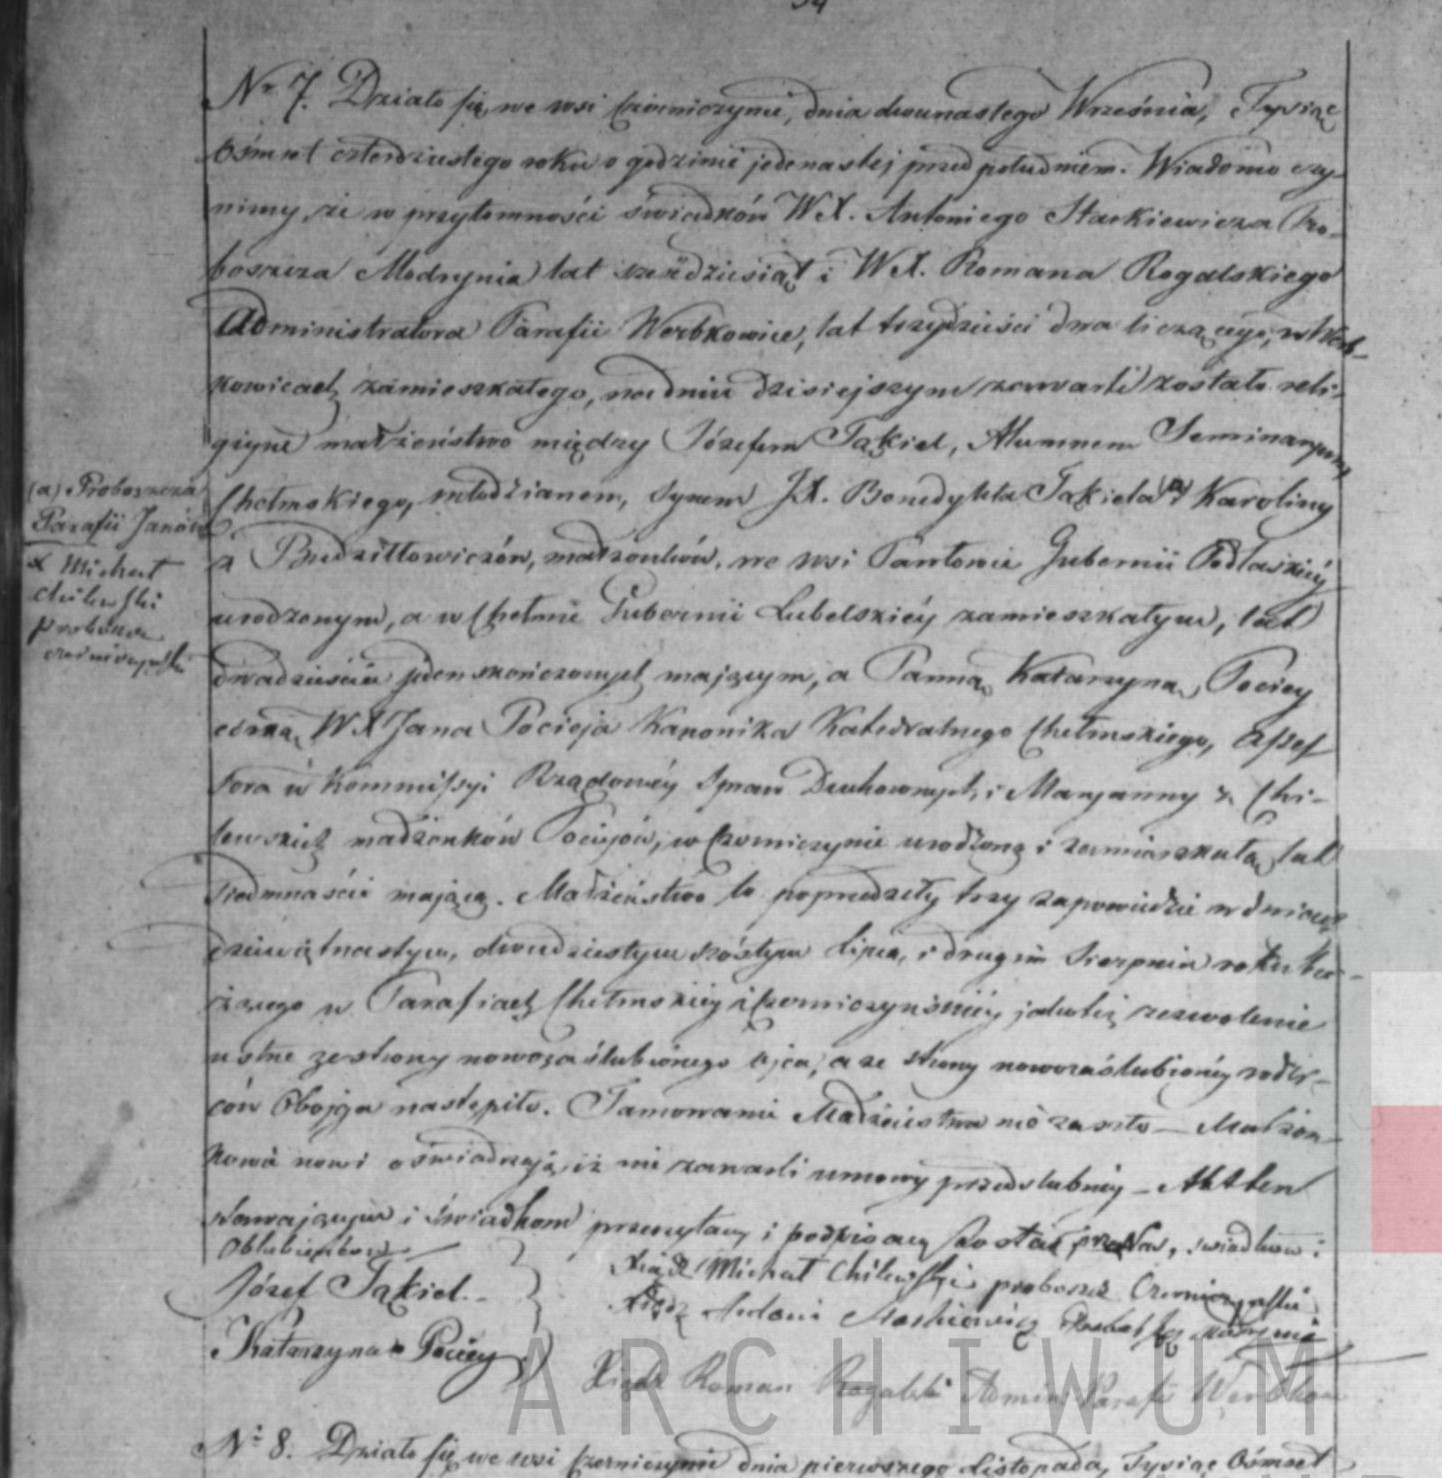 54
Nr. 7. Działo się we wsi Czerniczynie, dnia dwunastego Września, Tysiąc
Ośmset czterdziestego roku o godzinie jedenastej przed południem. Wiadomo czy-
nimy, że w przytomności świadków WX. Antoniego Starkiewicza Pro-
boszcza Modrynia lat sześdziesiąt i WX. Romana Rogalskiego
Administratora Parafii Werbkowice, lat trzydzieści dwa liczącego, w Werb-
kowicach zamieszkałego, na dniu dzisiejszym zawarte zostało reli-
gijne małżeństwo między Józefem Tąkiel, Alumnem Seminaryum
(a) Proboszcza
Parafii Janów
x Michał
Chilewski
proboszcz
czerniczyński
Chełmskiego, młodzianem, synem JX. Benedykta Tąkiela (a) i Karoliny
z Budziłłowiczów, małżonków, we wsi Pawłowie Gubernii Podlaskiéy
urodzonym, a w Chełmie Gubernii Lubelskiéy zamieszkałym, lat
dwadzieścia jeden skończonych mającym, a Panną Katarzyną Pociey
córką WX Jana Pocieja Kanonika Katedralnego Chełmskiego, Asses
sora w Kommissyi Rządowéy Spraw Duchownych i Maryanny z Chi-
lewskich małżonków Pociejów, w Czerniczynie urodzoną i zamieszkałą lat
siedmnaście mającą. Małżeństwo to poprzedziły trzy zapowiedzie w dniach
dziewiętnastym, dwudziestym szóstym Lipca, i drugim Sierpnia roku bie-
żącego w Parafiach Chełmskiéy i Czerniczyńskiéy jakoteż zezwolenie
ustne ze strony nowozaślubionego ojca, a ze strony nowozaślubionéy rodzi-
ców Obojga nastąpiło. Tamowanie Małżeństwa nie zaszło — Małżon-
kowie nowi oświadczają, iż nie zawarli umowy przedślubnéy — Akt ten
stawającym i świadkom przeczytany i podpisany został przez Nas, świadków i
Oblubieńców
Józef Tąkiel.
Katarzyna Pociey
Xiądz Michał Chilewski proboszcz Czerniczyński
Xiądz Antoni Starkiewicz Modrynia
Xiądz Roman Rogalski Admin: Parafii Werbkow
ARCHIWUM
Nr. 8. Działo się we wsi Czerniczynie dnia pierwszego Listopada, Tysiąc Ośmset